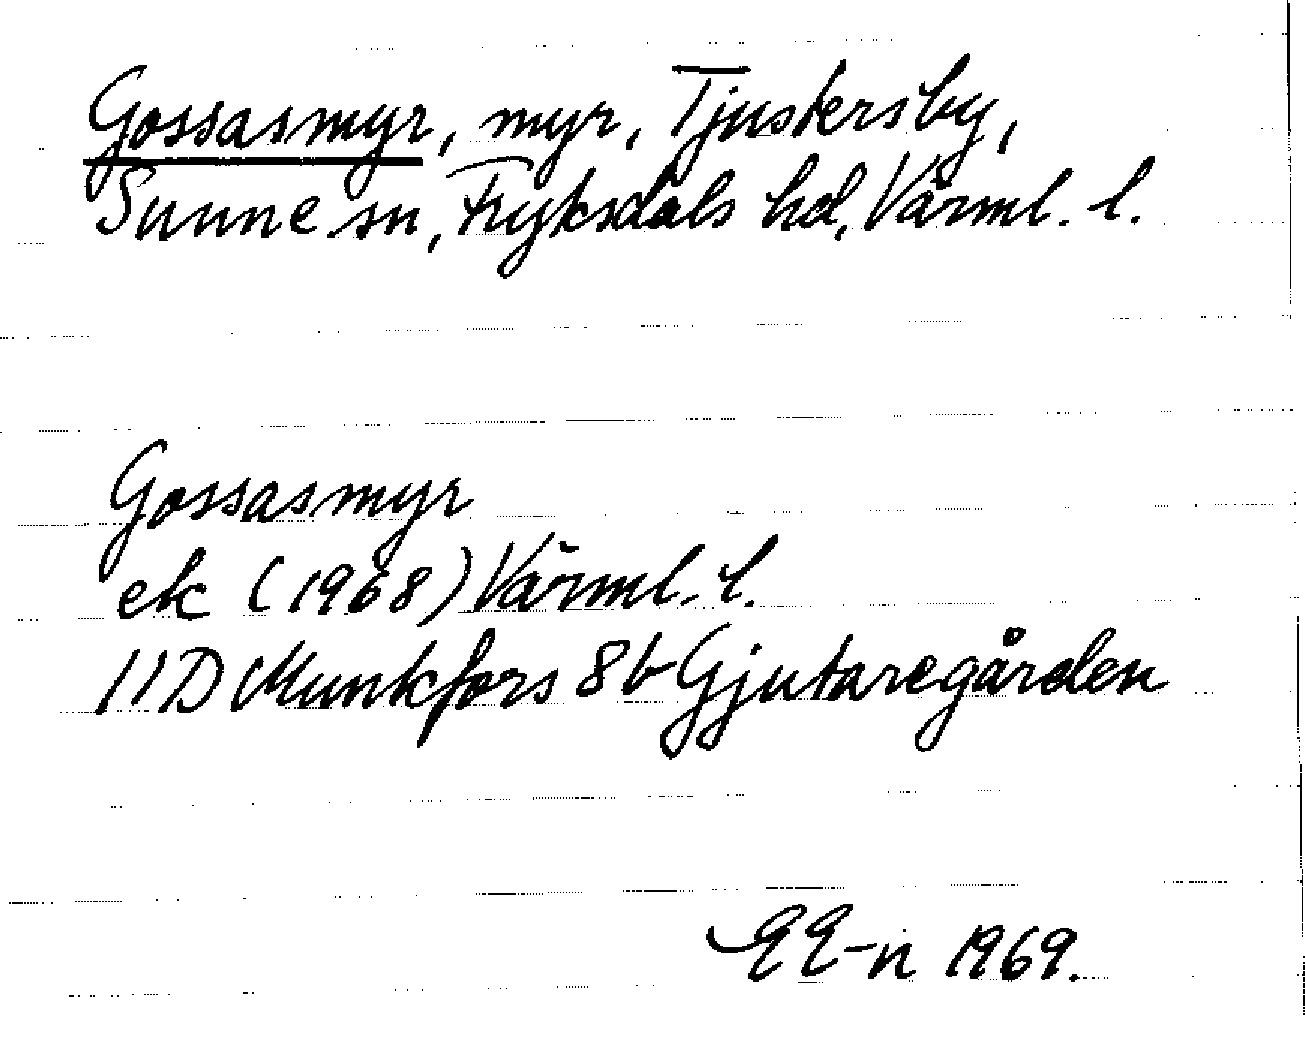 Gossasmyr, myr, Tjuskersby,
Sunne sn, Fryksdals hd, Värml. l.
Gossasmyr
ek (1968) Värml. l.
11D Munkfors 8b Gjutaregården
EE-n 1969.